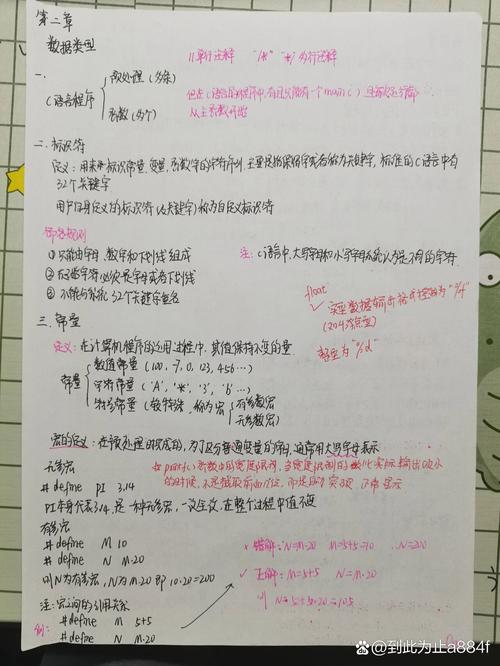 第二章
数据类型
//单行注释 "/*" "*/ 多行注释
一.
C语言程序
预处理(多条)
函数(多个)
但在C语言的程序中,有且只能有一个main()
从主函数开始
二.标识符
定义:用来标识常量、变量、函数等的字符序列,主要是指保留字或者称为关键字,标准的C语言中有
32个关键字
用户自身定义的标识符(必关键字)称为自定义标识符
命名规则
①只能由字母、数字和下划线组成
注:C语言中,大写字母和小写字母系统认为是不同的字符
②首字符必须是字母或者下划线
③不能与标准32个关键字重名
float
实型数据输出格式控制为"%f"
整型为"%d"
三.常量
定义:在计算机程序的运用过程中,其值保持不变的量
常量
数值常量(100,-7,0,123,456…)
字符常量('A','*','3','b'…)
符号常量(较特殊,称为宏
有参数宏
无参数宏)
宏的定义:在预处理时完成的,为了区分普通变量的作用,通常用大写字母表示
无参宏
# define PI 3.14
PI本身代表3.14,是一种无参宏,一定生效,在整个过程中值不变
有参宏
# define M 10
# define N M·20
则N为有参宏,N为M·20即10·20=200
× 错解:N=M·20 M=5+5=10 N=200
✓ 正解:M=5+5 N=M·20
则 N=5+5·20=105
注:宏之间的引用关系
例:
# define M 5+5
# define N M·20
@到此为止a884f